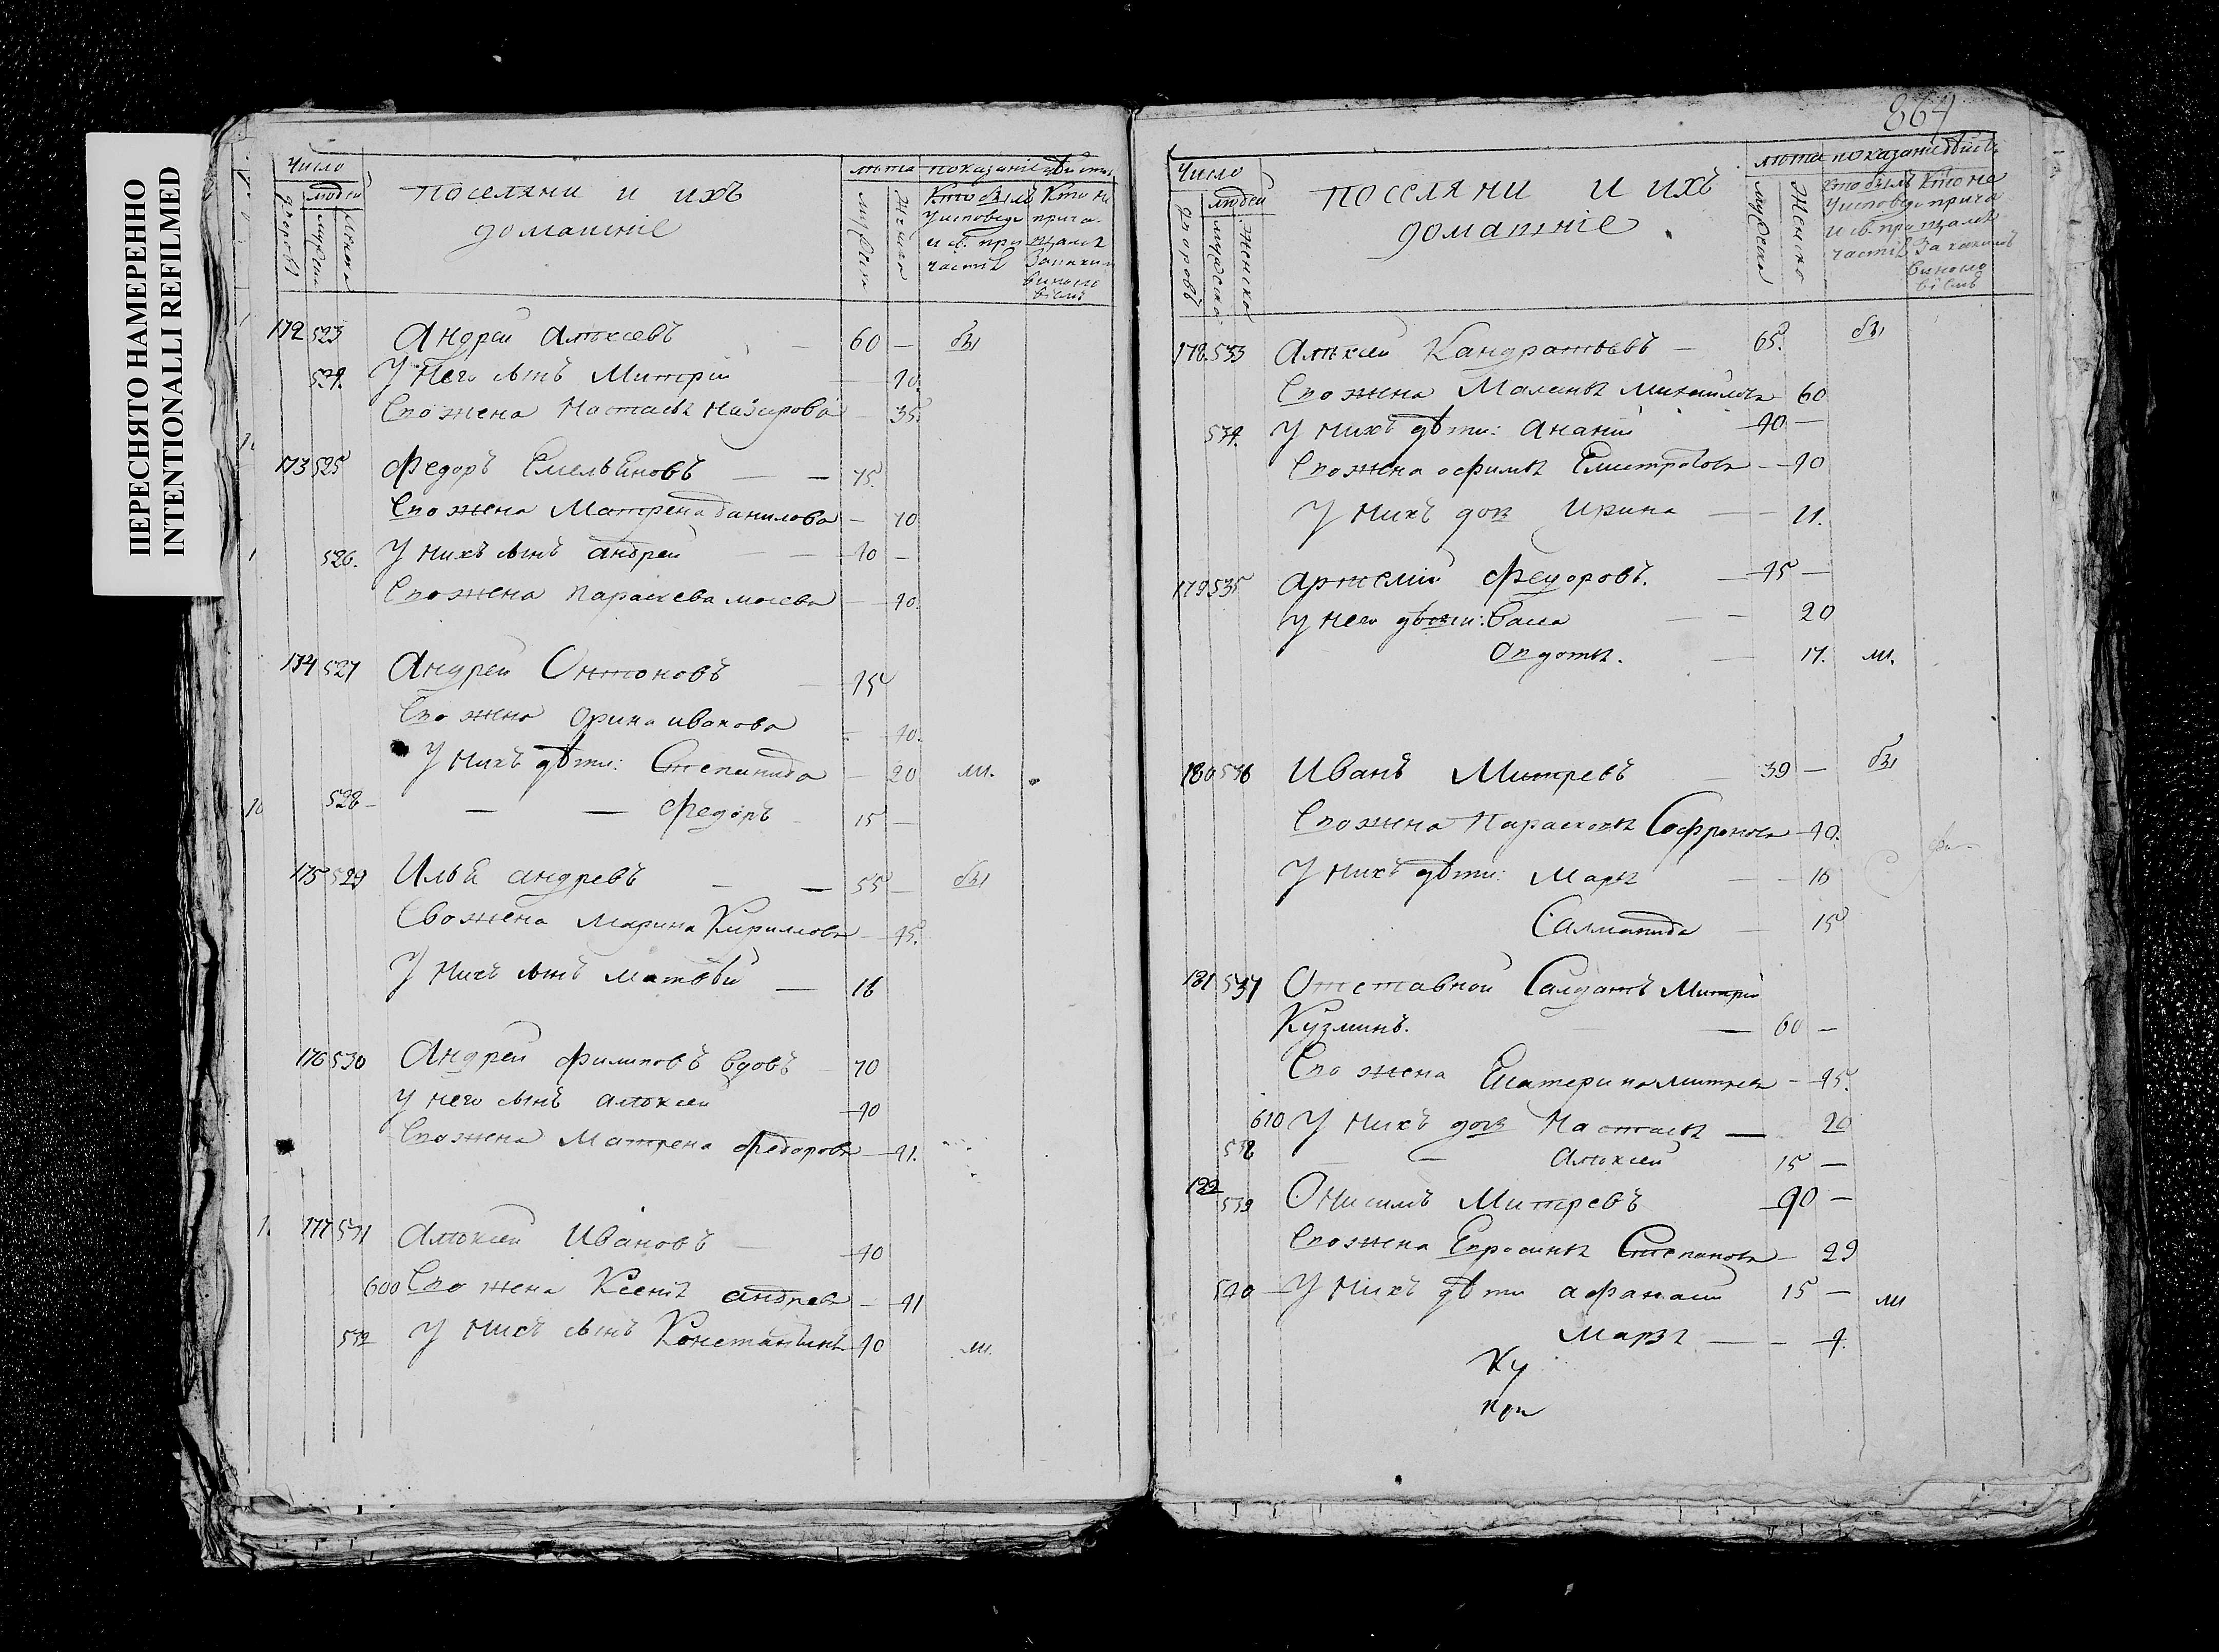 ПЕРЕСНЯТО НАМЕРЕННО
INTENTIONALLI REFILMED
Число
людей
дворовъ
мужеска
женска
поселяни и ихъ
домашніе
лѣта
мужска
женска
показаніе дѣйства
Кто былъ
у исповеди
и св. при
частіѣ
Кто не
прича
щался
За каким
винословіем
172 523 Андреи Алѣксеевъ — 60 — бы
524. У него сынъ Митріи — 40.
Ево жена Настасья Назарова — 35.
173 525 Федоръ Емельяновъ — — 45.
Ево жена Матрена данилова — 40
526. У нихъ сынъ андреи — — 10 —
Ево жена параскева — 40.
174 527 Андреи Онтоновъ — 45
Ево жена Орина иванова — 40.
У нихъ дѣти: Степанида — 20 ни.
528 — — — Федоръ 15 —
175 529 Илья андревъ — — 55 — бы
Ево жена Марина Кирилова — 45.
У нихъ сынъ матвѣи — 16
176 530 Андреи филиповъ вдовъ 70
у него сынъ алѣксеи 40
Ево жена Матрена Федорова — 41.
177 531 Алѣксеи Ивановъ — 40
600 Ево жена Ксенія андрева — 41
532 У нихъ сынъ Константинъ 10 ни.
864
Число
людей
дворовъ
мужеска
женска
поселяни и ихъ
домашніе
лѣта
мужеска
женско
показаніе дѣйства
Кто былъ
у исповеди
и св. при
частіѣ
Кто не
прича
щался
За какимъ
винословіемъ
178. 533 Алѣксеи Кандратьевъ — 65. бы
Ево жена Маланья Михаилова 60
534. У нихъ дѣти: Ананіи — 40 —
Ево жена офимья — 40
У нихъ дочь Ирина — — 11.
179 535 артеміи Федоровъ. — 45 —
У него дѣти: — — 20
Овдотья. — 17. ни.
180 536 Иванъ Митревъ — 39 — бы
Ево жена Парасковья Софронова — 40.
У нихъ дѣти: Марья — — 18
Саломанида — 15
181 537 Отставнои Салдатъ Митрии
Кузминъ. — 60 —
Ево жена Екатерина митрева — 45.
610 У нихъ дочь Настасья — 20
538 — — Алѣксеи 15 —
182 539 Онисимъ Митревъ 40 —
Ево жена Епросинья Степанова — 29
540 — У нихъ дѣти афанасіи 15 — ни
Марья — — 4.
Ку
при